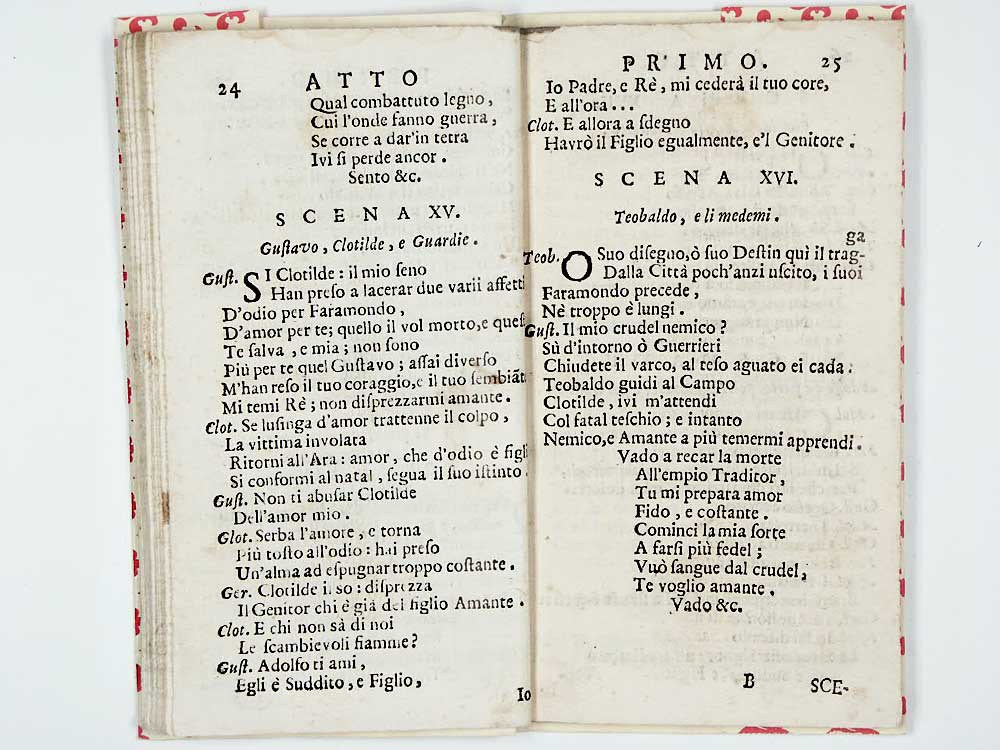 24 ATTO
Qual combattuto legno,
Cui l'onde fanno guerra,
Se corre a dar'in tetra
Ivi si perde ancor.
Sento &c.
SCENA XV.
Gustavo, Clotilde, e Guardie.
Gust. SI Clotilde: il mio seno
Han preso a lacerar due varii affetti
D'odio per Faramondo,
D'amor per te; quello il vol morto, e ques
Te salva, e mia; non sono
Più per te quel Gustavo; assai diverso
M'han reso il tuo coraggio, e il tuo sembiãt
Mi temi Rè; non disprezzarmi amante.
Clot. Se lusinga d'amor trattenne il colpo,
La vittima involata
Ritorni all'Ara: amor, che d'odio è figli
Si conformi al natal, segua il suo istinto.
Gust. Non ti abusar Clotilde
Dell'amor mio.
Glot. Serba l'amore, e torna
Più tosto all'odio: hai preso
Un'alma ad espugnar troppo costante.
Ger. Clotilde il so: disprezza
Il Genitor chi è già del figlio Amante.
Clot. E chi non sà di noi
Le scambievoli fiamme?
Gust. Adolfo ti ami,
Egli è Suddito, e Figlio,
Io
PRIMO. 25
Io Padre, e Rè, mi cederà il tuo core,
E all'ora...
Clot. E allora a sdegno
Havrò il Figlio egualmente, e'l Genitore.
SCENA XVI.
Teobaldo, e li medemi.
ga
Teob. O Suo disegno, ò suo Destin quì il trag-
Dalla Città poch'anzi uscito, i suoi
Faramondo precede,
Nè troppo è lungi.
Gust. Il mio crudel nemico?
Sù d'intorno ò Guerrieri
Chiudete il varco, al teso aguato ei cada.
Teobaldo guidi al Campo
Clotilde, ivi m'attendi
Col fatal teschio; e intanto
Nemico, e Amante a più temermi apprendi.
Vado a recar la morte
All'empio Traditor,
Tu mi prepara amor
Fido, e costante.
Cominci la mia sorte
A farsi più fedel;
Vuò sangue dal crudel,
Te voglio amante.
Vado &c.
B SCE-